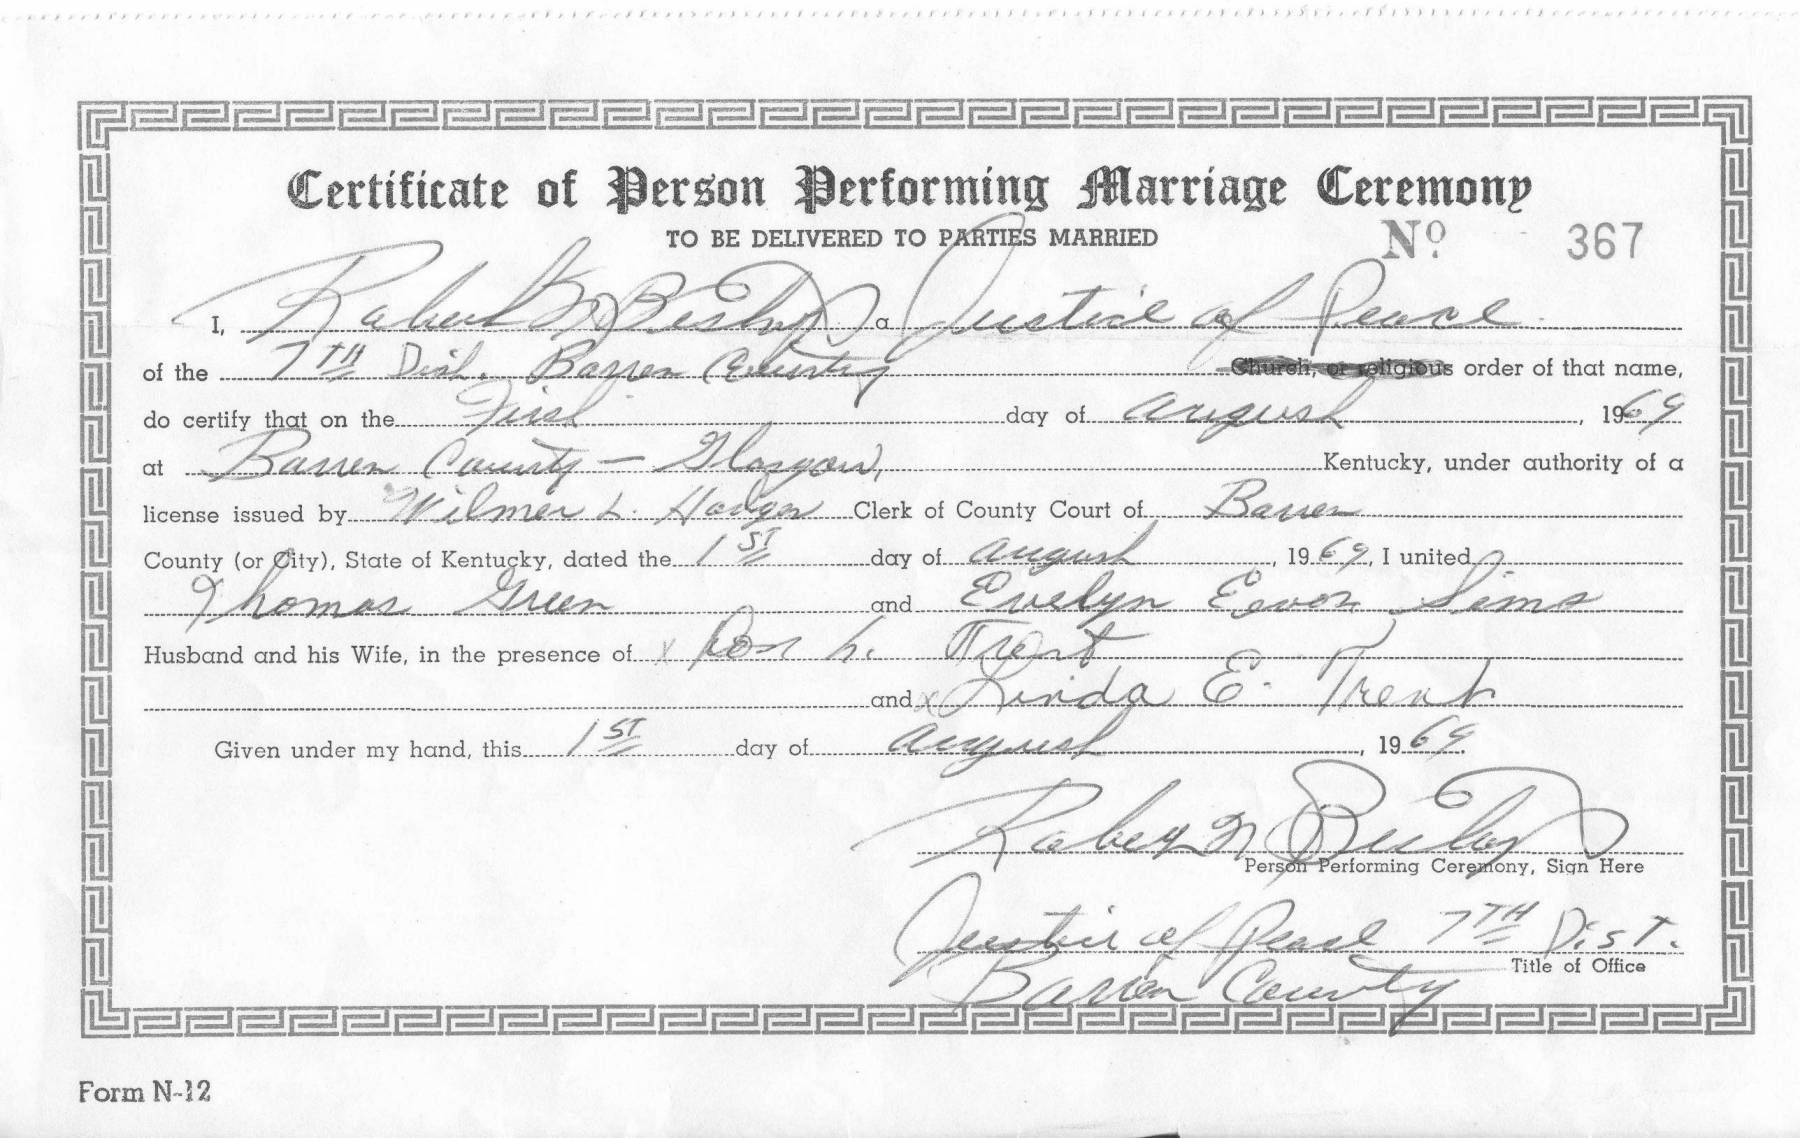 Certificate of Person Performing Marriage Ceremony
TO BE DELIVERED TO PARTIES MARRIED
Nº 367
I, Robert a Justice of Peace
of the 7TH Dist. Barren County Church, or religious order of that name,
do certify that on the First day of August, 1969
at Barren County - Glasgow, Kentucky, under authority of a
license issued by Wilmer L. Clerk of County Court of Barren
County (or City), State of Kentucky, dated the 1ST day of August, 1969, I united
Thomas Green and Evelyn Sims
Husband and his Wife, in the presence of x L. Trent
and x Linda E. Trent
Given under my hand, this 1ST day of August, 1969.
Robert
Person Performing Ceremony, Sign Here
Justice of Peace 7TH Dist.
Title of Office
Barren County
Form N-12